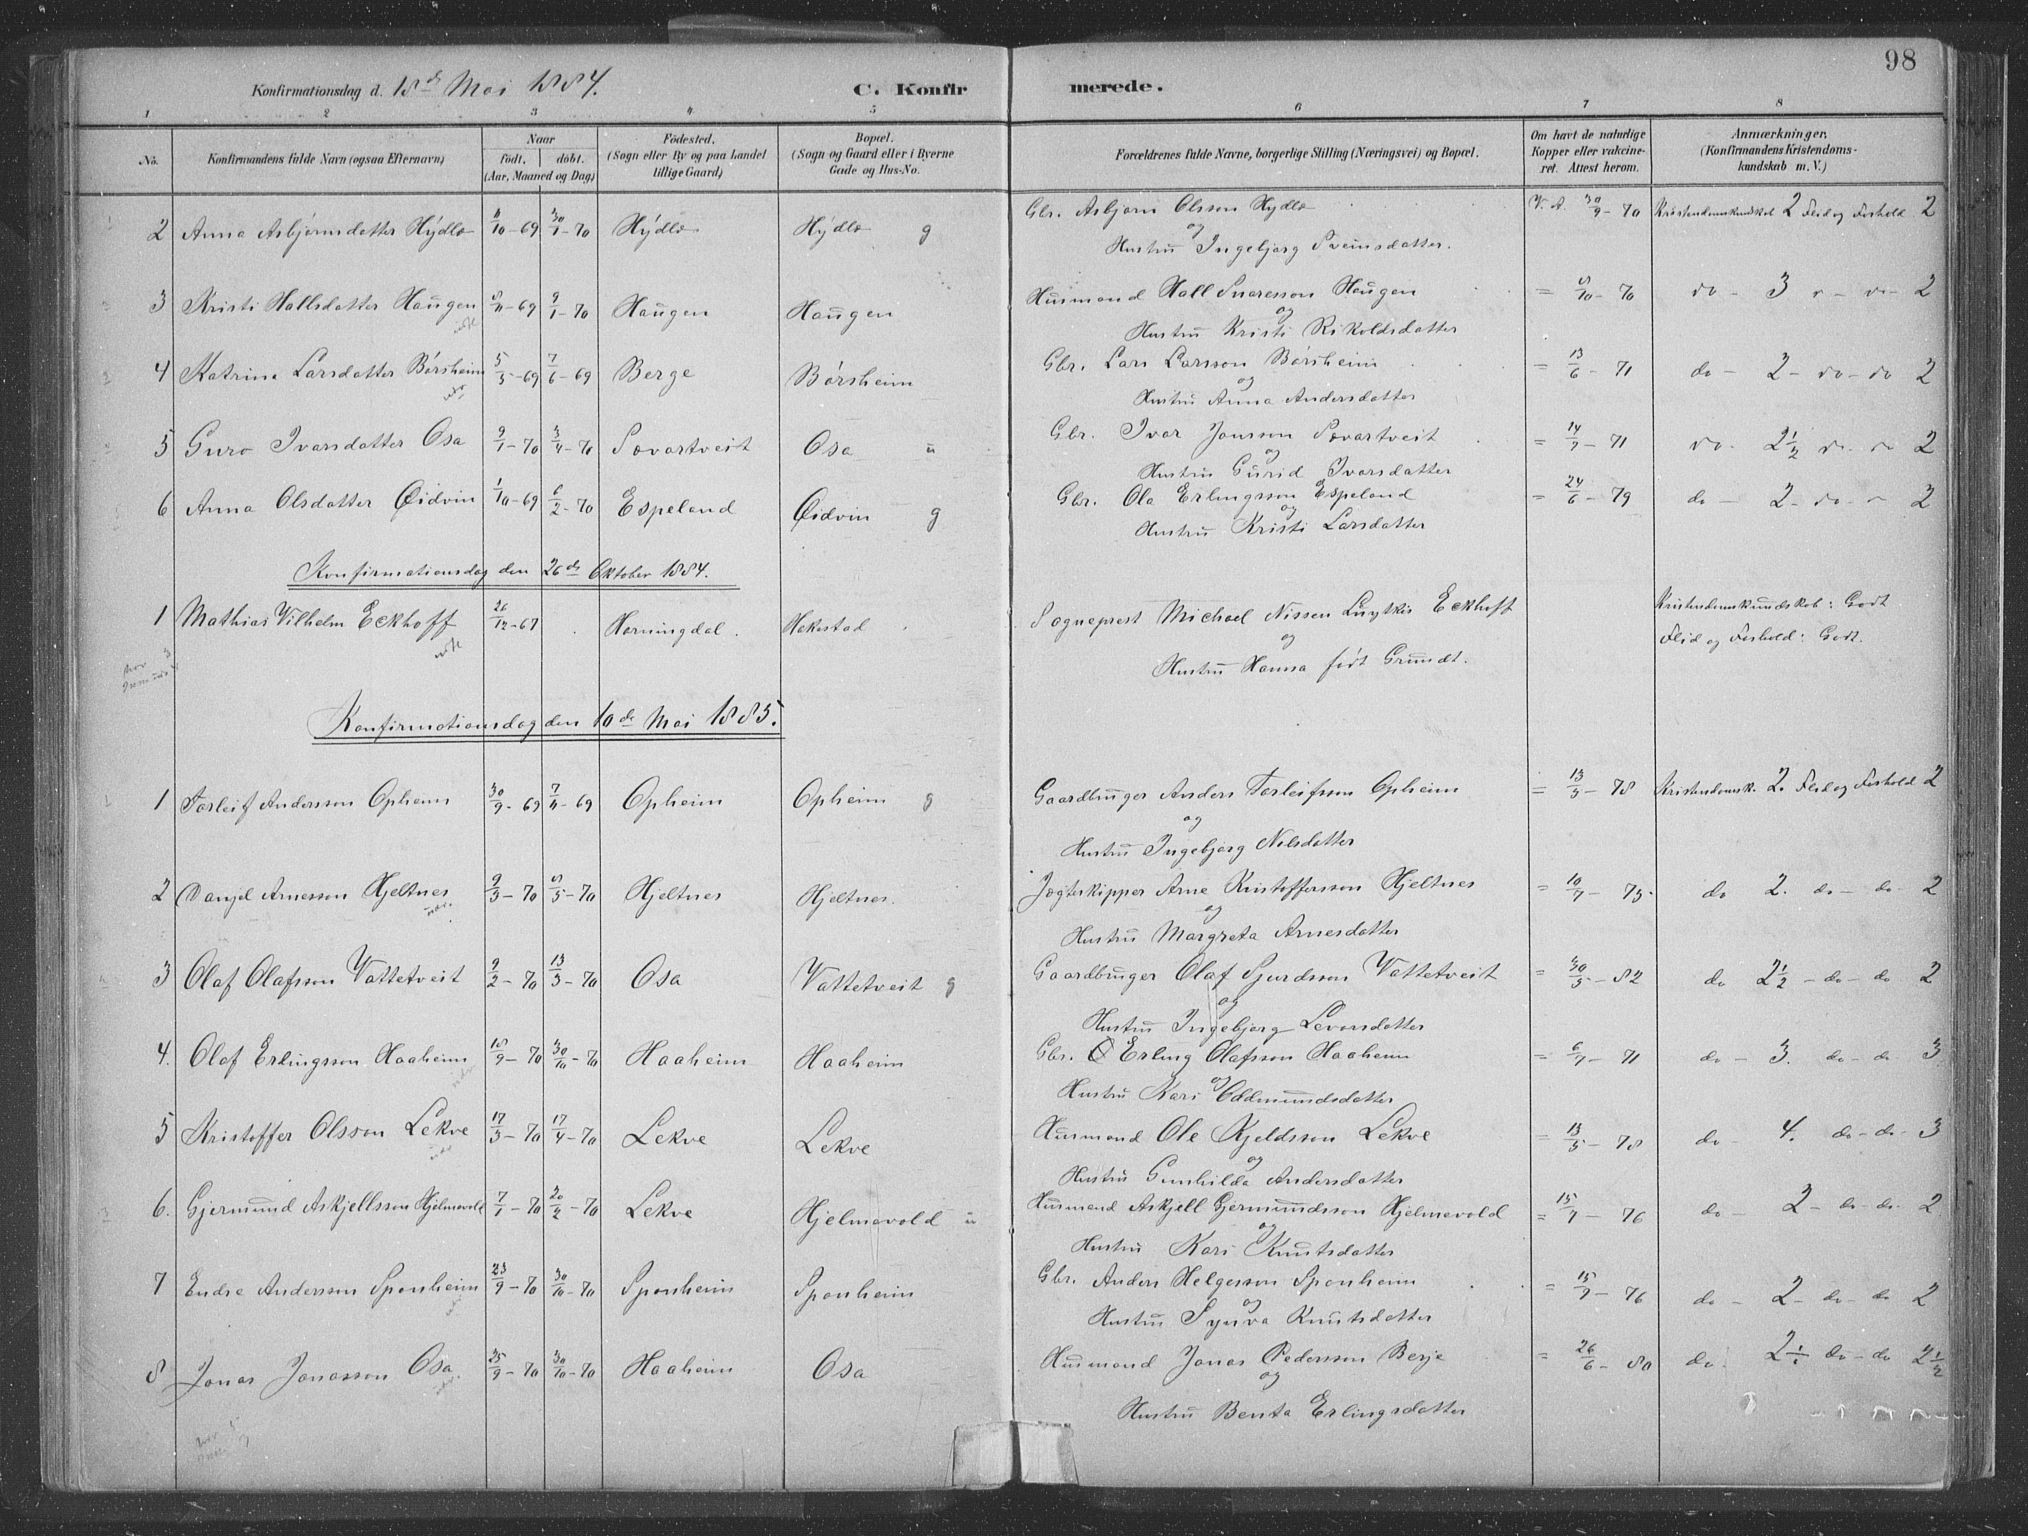 98
Konfirmationsdag d. 18de Mai 1884. C. Konfirmerede.
1 2 3 4 5 6 7 8
No. Konfirmandens fulde Navn (ogsaa Efternavn) Naar født. døbt. (Aar, Maaned og Dag) Fødested. (Sogn eller By og paa Landet tillige Gaard) Bopæl. (Sogn og Gaard eller i Byerne Gade og Hus-No. Forældrenes fulde Navne, borgerlige Stilling (Næringsvei) og Bopæl. Om havt de naturlige Kopper eller vakcineret. Attest herom. Anmærkninger. (Konfirmandens Kristendomskundskab m. V.)
2 Anna Asbjørnsdatter Hýdle 11/10-69 30/1-70 Hýdle Hýdle g Gbr. Asbjørn Olsson Hydle V. A. 30/9-70 Kristendomskundskab 2 Flid og Forhold 2
og
Hustru Ingebjørg Sveinsdatter.
3 Kristi Hallsdatter Haugen 8/11-69 9/1-70 Haugen Haugen Husmand Hall Haugen = 8/10-70 do - 3 - do - 2
og
Hustru Kristi Rikoldsdatter
4 Katrina Larsdatter Børsheim 5/5-69 7/6-69 Berge Børsheim Gbr. Lars Larsson Børsheim = 13/6-71 do - 2 - do - do 2
og
Hustru Anna Andersdatter
5 Guro Ivarsdatter Osa 9/1-70 3/4-70 Sovartveit Osa u Gbr. Ivar Jonsson Sovartveit = 14/7-71 do - 2 1/2 do - 2
og
Hustru Gurid Ivarsdatter
6 Anna Olsdatter Øidvin 1/10-69 6/2-70 Espeland Øidvin g Gbr. Ola Erlingsson Espeland = 24/6-79 do - 2 - do - 2
og
Hustru Kristi Larsdatter
Konfirmationsdag den 26de Oktober 1884.
1 Mathias Vilhelm Eckhoff 26/12-67 Horningdal. Hakestad Sogneprest Michael Nissen Eckhoff Kristendomskundskab: Godt
og Flid og Forhold: Godt.
Hustru Hanna født Grundt.
Konfirmationsdag den 10de Mai 1885.
1 Torleif Andersson Opheim 30/9-69 7/11-69 Opheim Opheim g Gaardbruger Anders Torleifsson Opheim = 13/5-78 Kristendomsk. 2. Flid og Forhold 2
og
Hustru Ingebjørg Nilsdatter
2 Danjel Arnesson Hjeltnes 9/3-70 8/5-70 Hjeltnes Hjeltnes. Jagteskipper Arne Kristoffersson Hjeltnes = 10/7-75. do 2. do - do - 2
og
Hustru Margreta Arnesdatter
3 Olaf Olafsson Vattetveit 9/2-70 13/3-70 Osa Vattetveit g Gaardbruger Olaf Sjurdsson Vattetveit = 30/5-82 do 2 1/2 - do - do 2
og
Hustru Ingebjørg Levorsdatter
4. Olaf Erlingsson Haaheim 18/9-70 30/10-70 Haaheim Haaheim Gbr. Erling Olafsson Haaheim = 6/7-71 do - 3. do - do 3
og
Hustru Kari Oddmundsdatter
5 Kristoffer Olsson Lekve 17/3-70 17/4-70 Lekve Lekve Husmand Ole Kjeldsson Lekve = 13/5-78 do - 4. do - do - 3
og
Hustru Gunhilda Andersdatter
6. Gjermund Askjellsson Hjelmevold 7/1-70 20/2-70 Lekve Hjelmevold u Husmand Askjell Gjermundsson Hjelmevold = 15/7-76 do - 2 - do - do - 2
og
Hustru Kari Knutsdatter
7 Endre Andersson Sponheim 23/9-70 30/10-70 Sponheim Sponheim Gbr. Anders Helgesson Sponheim = 15/7-76 do - 2 - do - do 2
og
Hustru Synva Knutsdatter
8 Jonas Jonasson Osa 25/9-70 30/10-70 Haaheim Osa Husmand Jonas Pedersson Berje = 26/6-80 do - 2 1/2 do - do 2 1/2
og
Hustru Benta Erlingsdatter